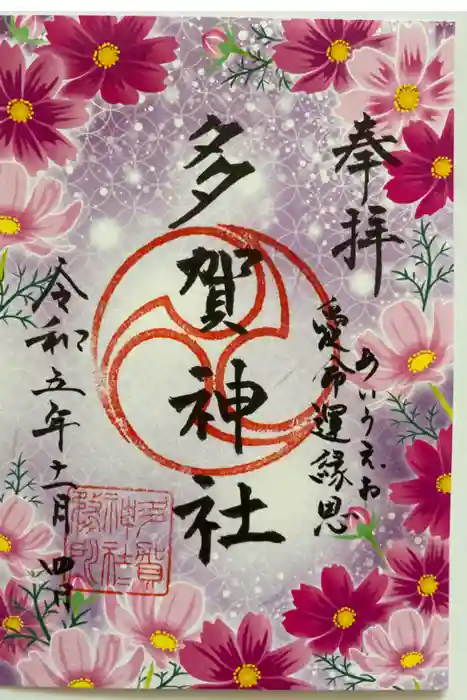 奉拝
あいうえお
愛命運縁恩
多賀神社
令和五年十一月四日
多賀
神社
務所